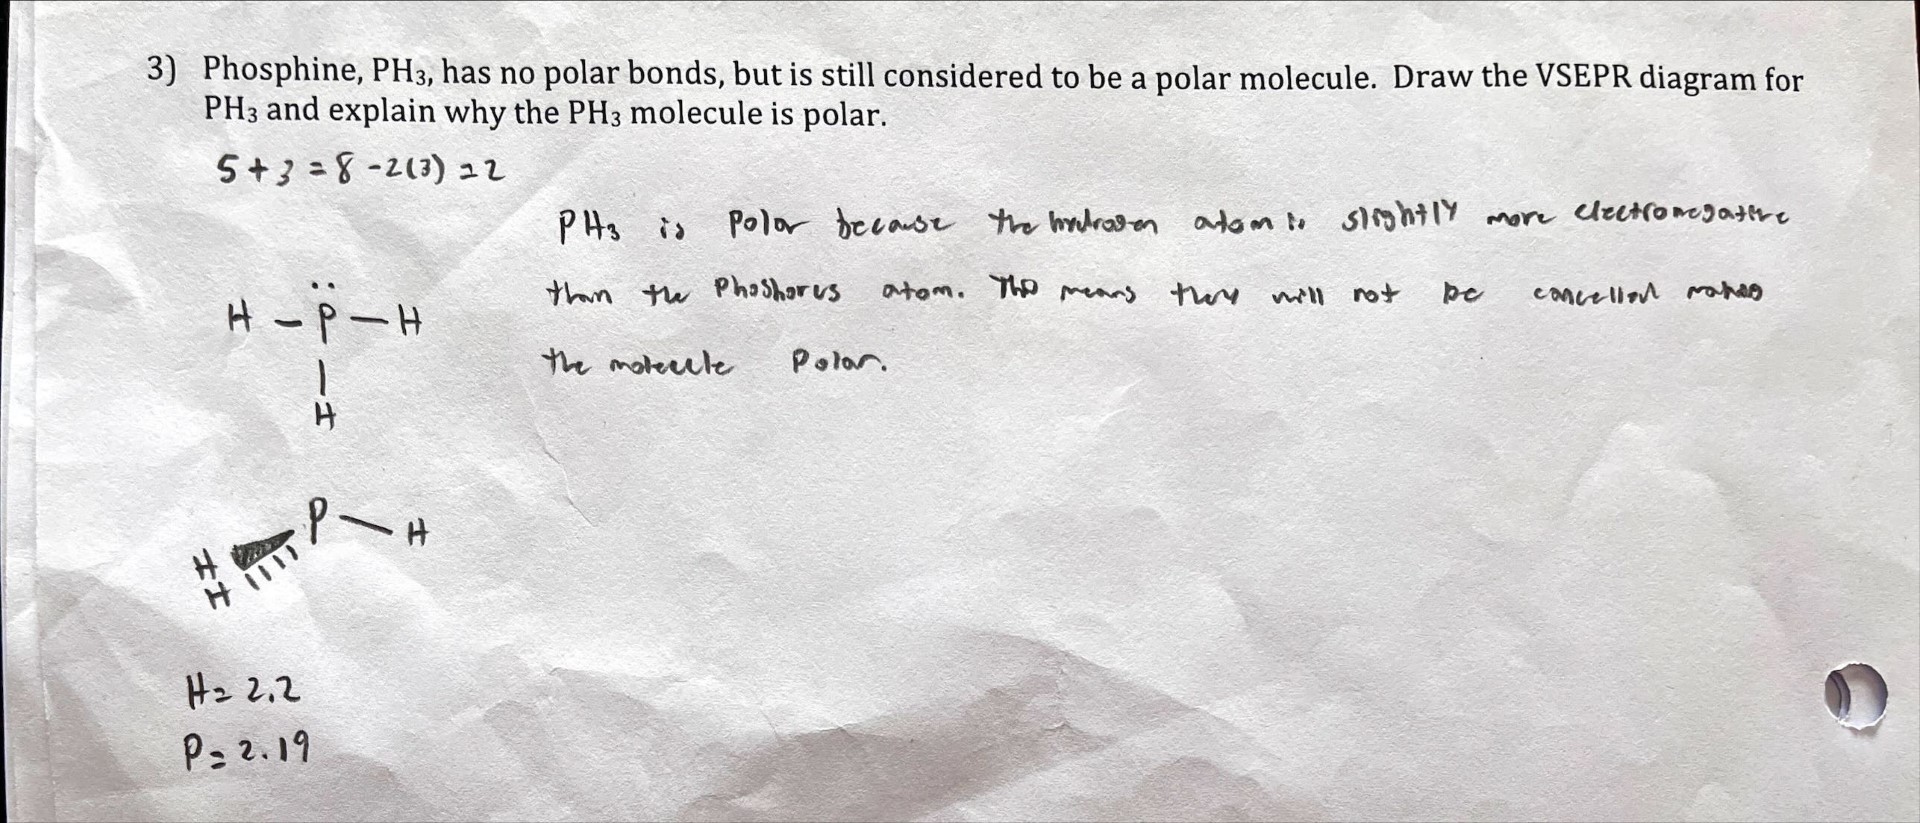 3) Phosphine, PH₃, has no polar bonds, but is still considered to be a polar molecule. Draw the VSEPR diagram for
PH₃ and explain why the PH₃ molecule is polar.
5 + 3 = 8 - 2(3) = 2
PH₃ is Polar because the hydrogen atom is slightly more electronegative
than the Phoshorus atom. This means they will not be cancelled makes
the molecule Polar.
H - P - H
H
P - H
H
H
H = 2.2
P = 2.19